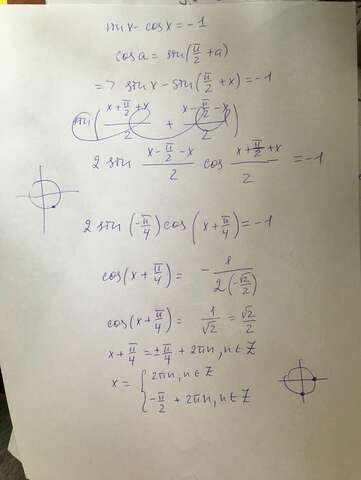 sin x - cos x = -1
cos a = sin(π/2 + a)
=> sin x - sin(π/2 + x) = -1
sin((x + π/2 + x)/2 + (x - π/2 - x)/2)
2 sin (x - π/2 - x)/2 cos (x + π/2 + x)/2 = -1
2 sin(-π/4) cos(x + π/4) = -1
cos(x + π/4) = - 1/(2(-√2/2))
cos(x + π/4) = 1/√2 = √2/2
x + π/4 = ±π/4 + 2πn, n ∈ Z
x = { 2πn, n ∈ Z
-π/2 + 2πn, n ∈ Z